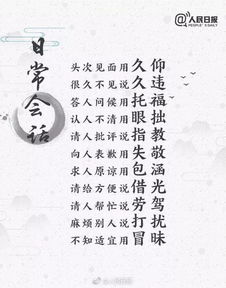 @人民日报
PEOPLE'S DAILY
日常会话
头次见面用久仰
很久不见说久违
答人问候用托福
认人不清说眼拙
请人批评用指教
向人表歉说失敬
求人原谅用包涵
请给方便说借光
请人帮忙用劳驾
麻烦别人说打扰
不知适宜用冒昧
@人民日报